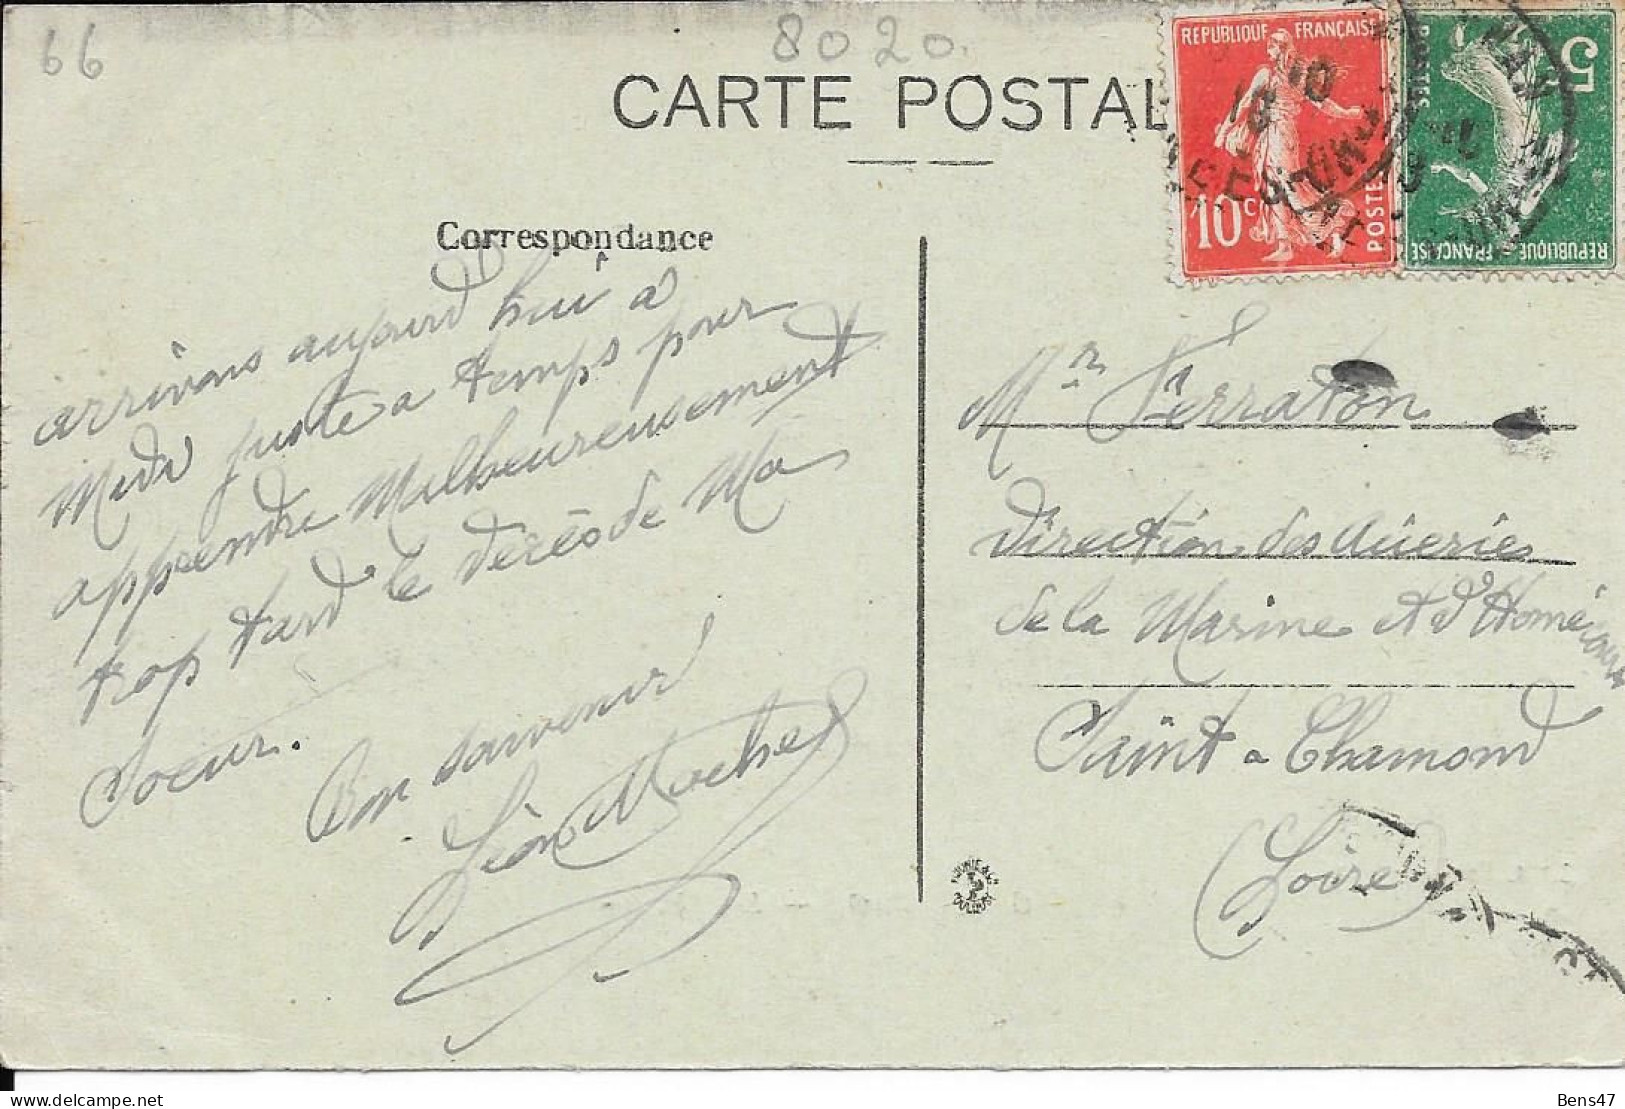 66
8020.
CARTE POSTAL
REPUBLIQUE FRANÇAISE
10c
POSTES
5
REPUBLIQUE FRANÇAISE
Correspondance
arrivons aujourd'hui à
Midi juste a temps pour
apprendre Malheureusement
trop tard le décès de Ma
Soeur.
Bon souvenir
Léon
Mr Ferraton
Direction des Aciéries
de la Marine et d'Homécourt
Saint-Chamond
(Loire)
Bens47